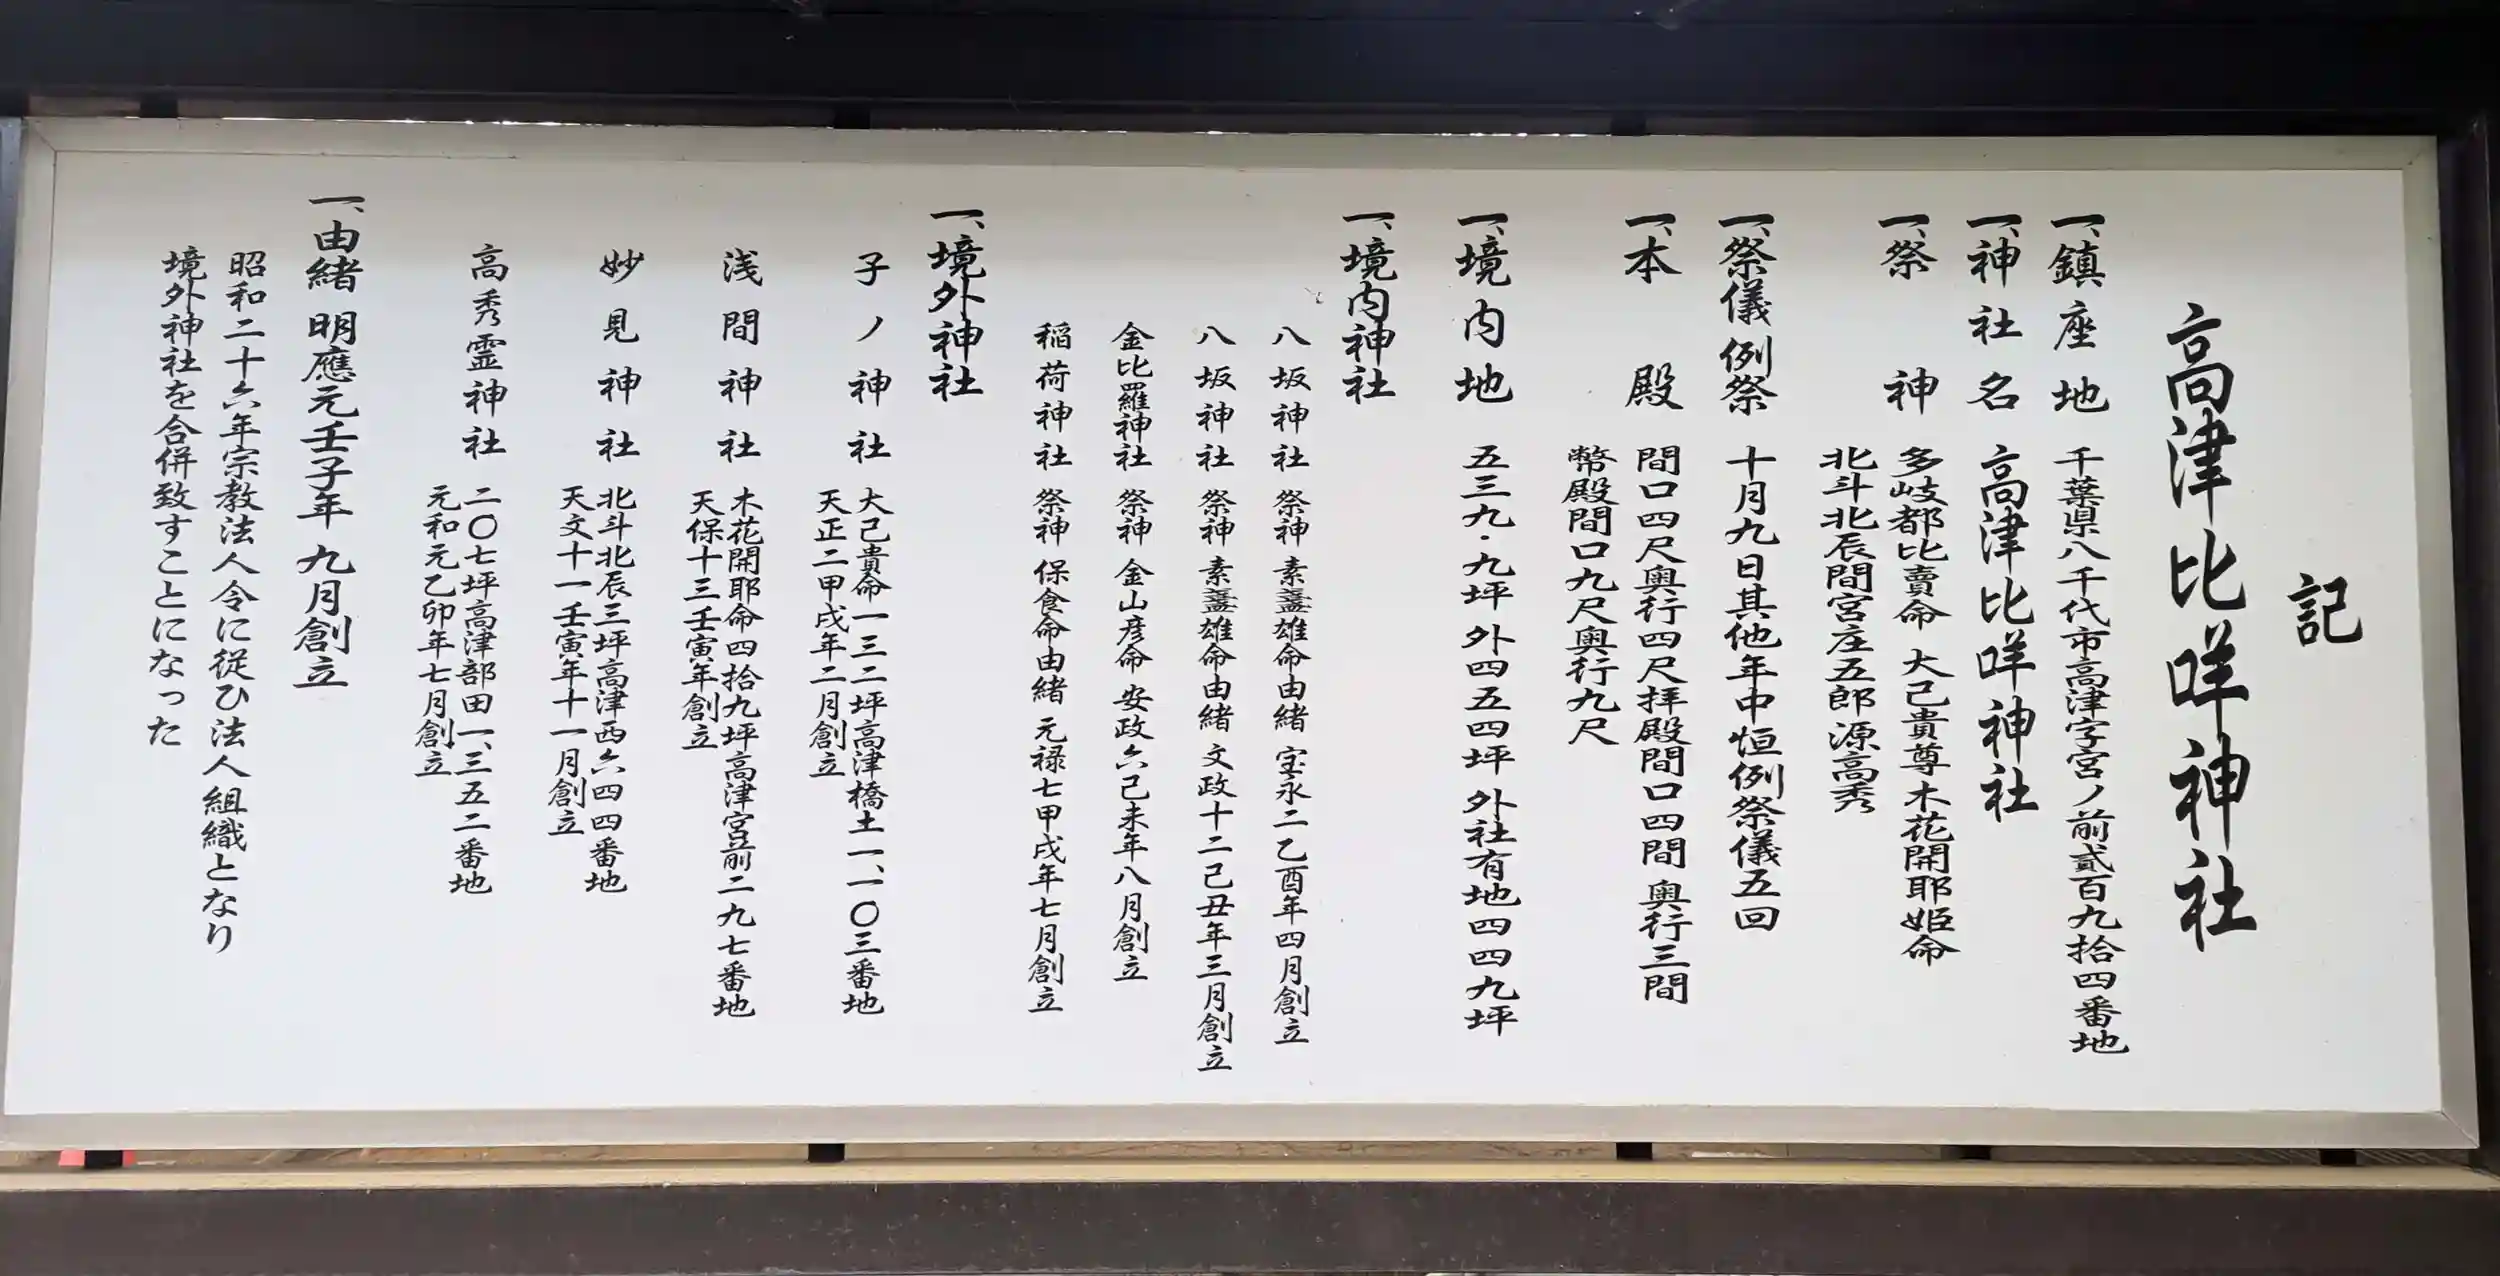 記
高津比咩神社
一、鎮座地 千葉県八千代市高津字宮ノ前貳百九拾四番地
一、神社名 高津比咩神社
一、祭神 多岐都比賣命 大己貴尊木花開耶姫命
北斗北辰間宮庄五郎源高秀
一、祭儀例祭 十月九日其他年中恒例祭儀五回
一、本殿 間口四尺奥行四尺拝殿間口四間奥行三間
幣殿間口九尺奥行九尺
一、境内地 五三九・九坪 外四五四坪 外社有地四四九坪
一、境内神社
八坂神社 祭神 素盞雄命由緒 宝永二乙酉年四月創立
八坂神社 祭神 素盞雄命由緒 文政十二己丑年三月創立
金比羅神社 祭神 金山彦命 安政六己未年八月創立
稲荷神社 祭神 保食命由緒 元禄七甲戌年七月創立
一、境外神社
子ノ神社 大己貴命一三二坪高津橋土一、一〇三番地
天正二甲戌年二月創立
浅間神社 木花開耶命四拾九坪高津宮前二九七番地
天保十三壬寅年創立
妙見神社 北斗北辰三坪高津西六四四番地
天文十一壬寅年十一月創立
高秀霊神社 二〇七坪高津部田一、三五二番地
元和元乙卯年七月創立
一、由緒 明應元壬子年九月創立
昭和二十六年宗教法人令に従ひ法人組織となり
境外神社を合併致すことになった